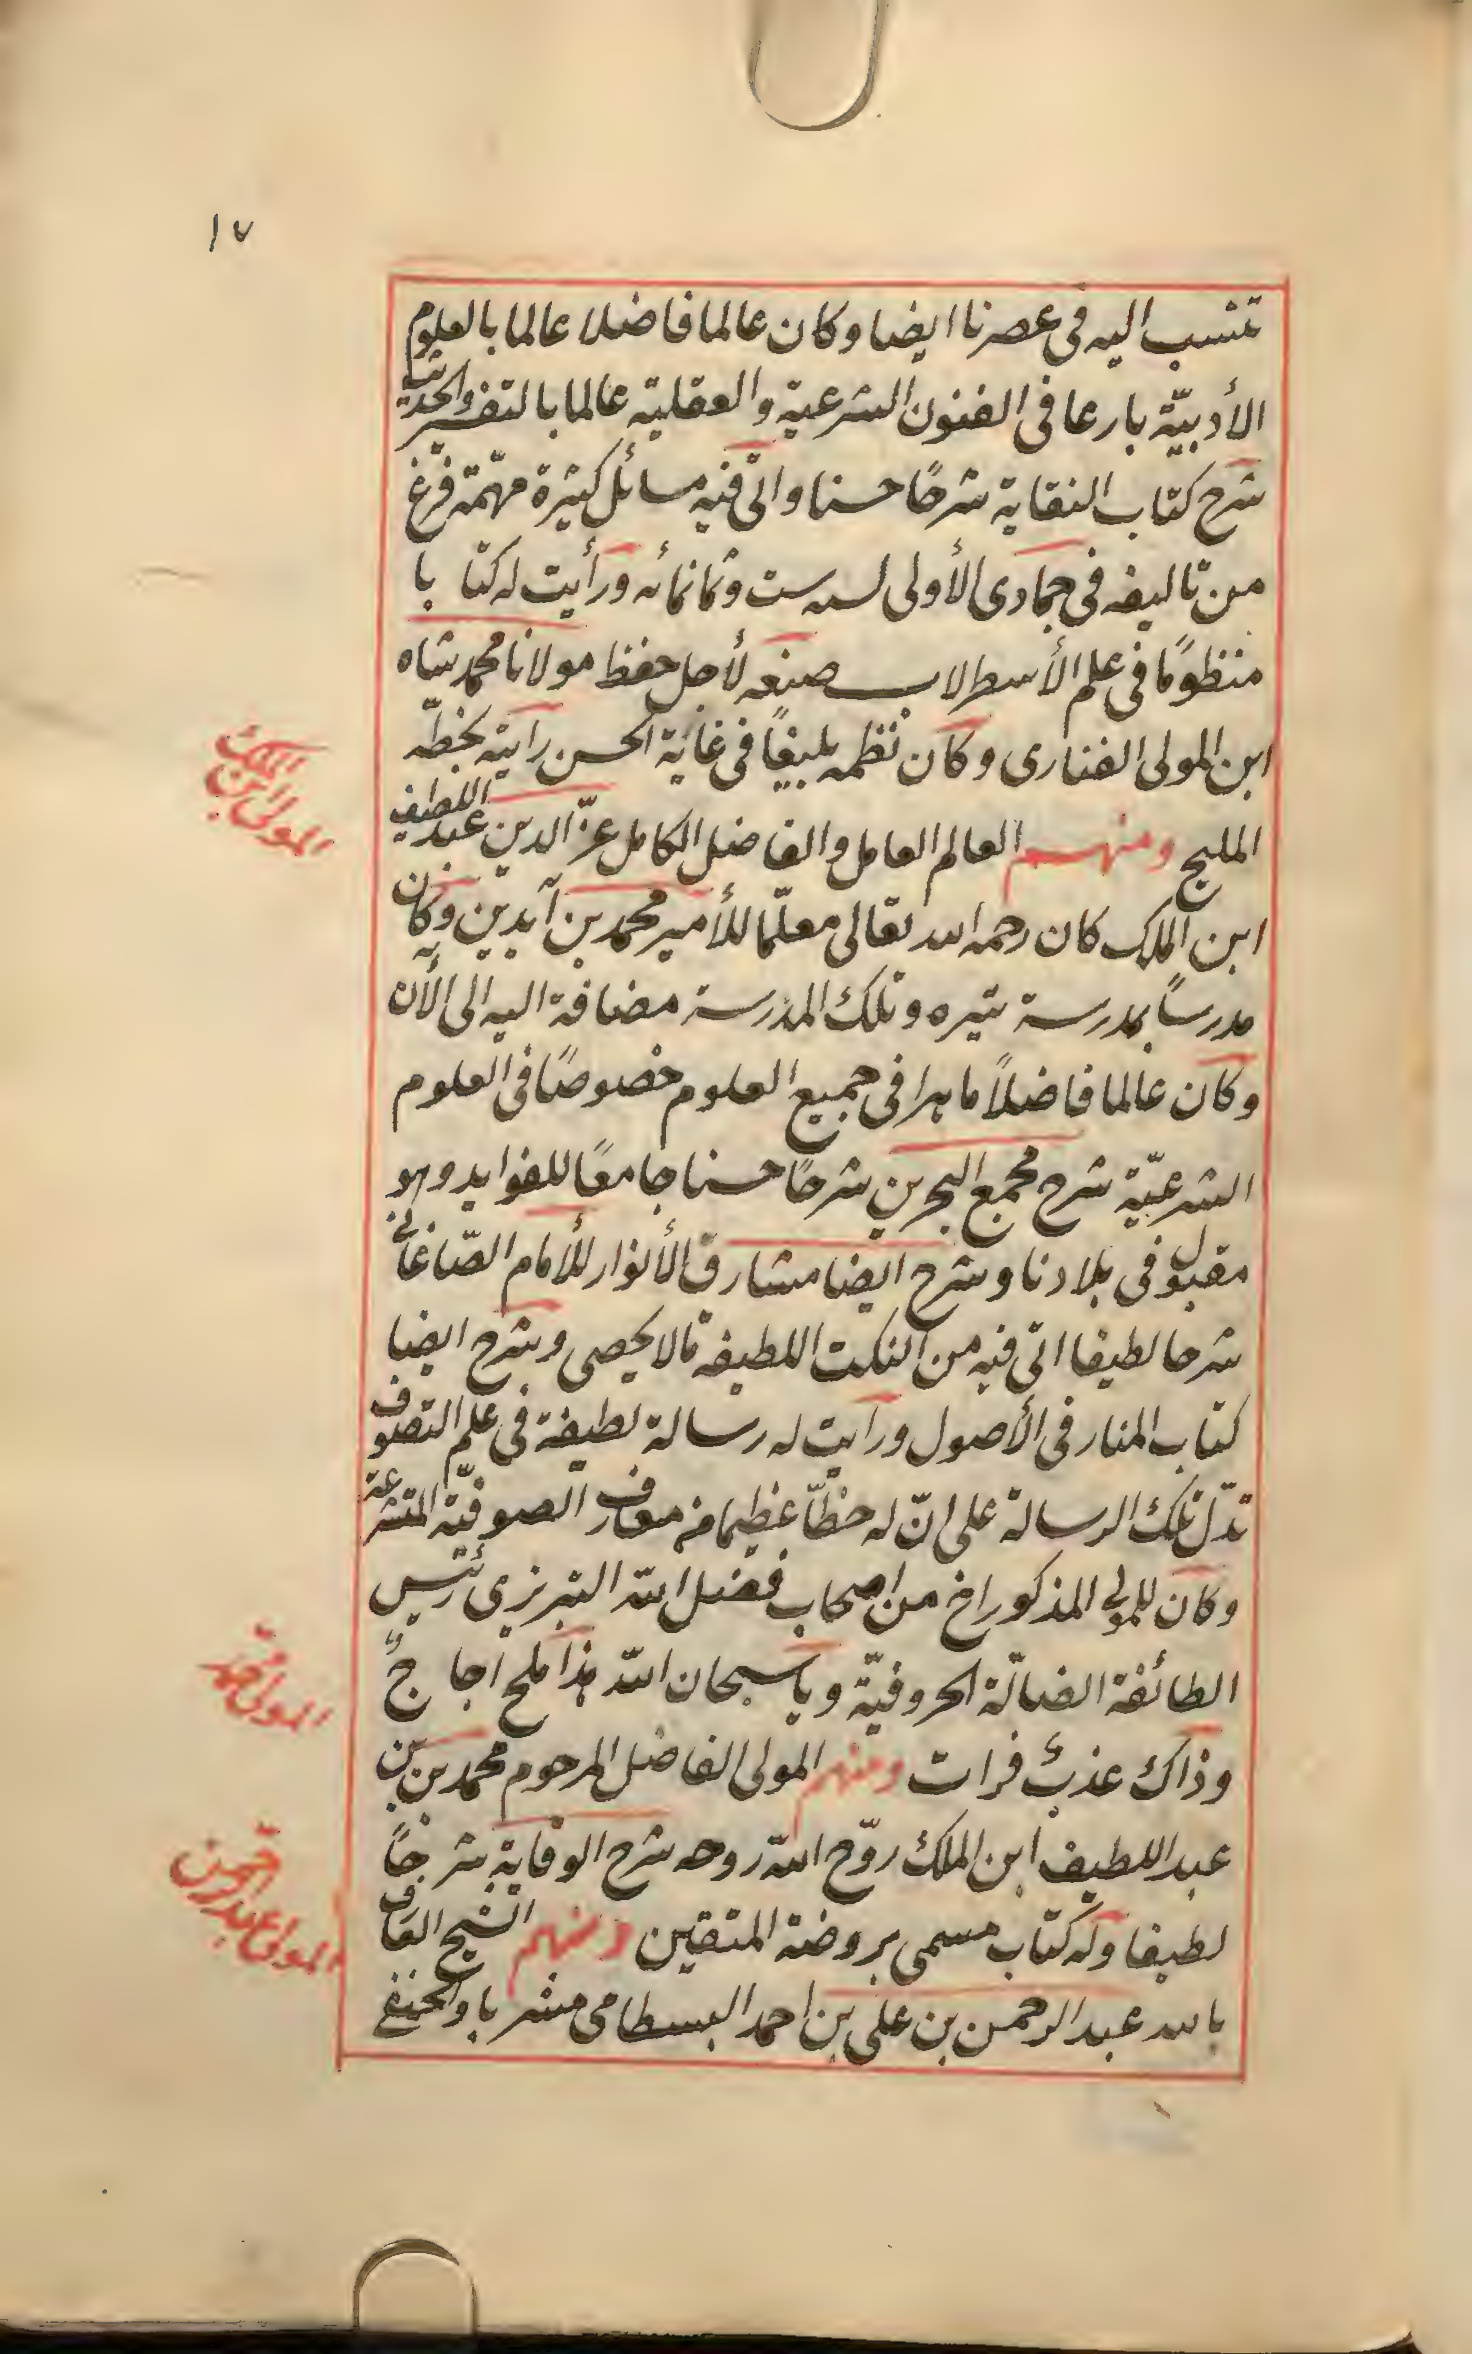 ١٧
تنسب اليه فى عصرنا ايضا وكان عالما فاضلا عالما بالعلوم
الأدبيّة بارعا فى الفنون الشرعية والعقلية عالما بالتفسير والحديث
شرح كتاب النقاية شرحًا حسنا واتى فيه مسائل كثيرة مهمّة فرغ
من تاليفه فى جمادى الأولى لسنه ست وثمانمائه ورأيت له كتابا
منظومًا فى علم الأسطرلاب صنعه لأجل حفظ مولانا محمد شاه
ابن المولى الفنارى وكان نظمه بليغًا فى غاية الحسن رايته بخطّه
المليح ومنهم العالم العامل والفاضل الكامل عزّ الدين عبد اللطيف
ابن الملك كان رحمه الله تعالى معلّما للأمير محمد بن آيدين وكان
مدرسًا بمدرسة تيره وتلك المدرسة مضافة اليه الى الآن
وكان عالما فاضلاً ماهرا فى جميع العلوم خصوصًا فى العلوم
الشرعيّة شرح مجمع البحرين شرحًا حسنا جامعًا للفوايد وهو
مقبول فى بلادنا وشرح ايضا مشارق الأنوار للأمام الصّاغانى
شرحا لطيفا اتى فيه من النكت اللطيفة مالا يحصى وشرح ايضا
كتاب المنار فى الأصول ورايت له رسالة لطيفة فى علم التصوف
تدلّ تلك الرسالة على انّ له حظّا عظيما من معارف الصوفيّة المتشرعة
وكان للمولى المذكور اخ من اصحاب فضل الله التبريزى رئيس
الطائفة الضالّة الحروفيّة ويا سبحان الله هذا ملح اجاجٌ
وذاك عذبٌ فرات ومنهم المولى الفاضل المرحوم محمد بن
عبد اللطيف ابن الملك روّح الله روحه شرح الوقاية شرحًا
لطيفا وله كتاب مسمى بروضة المتقين ومنهم الشيخ العارف
بالله عبد الرحمن بن على بن احمد البسطامى مشربا والحنفى
المولى ابن الملك
المولى محمد
المولى عبد الرحمن